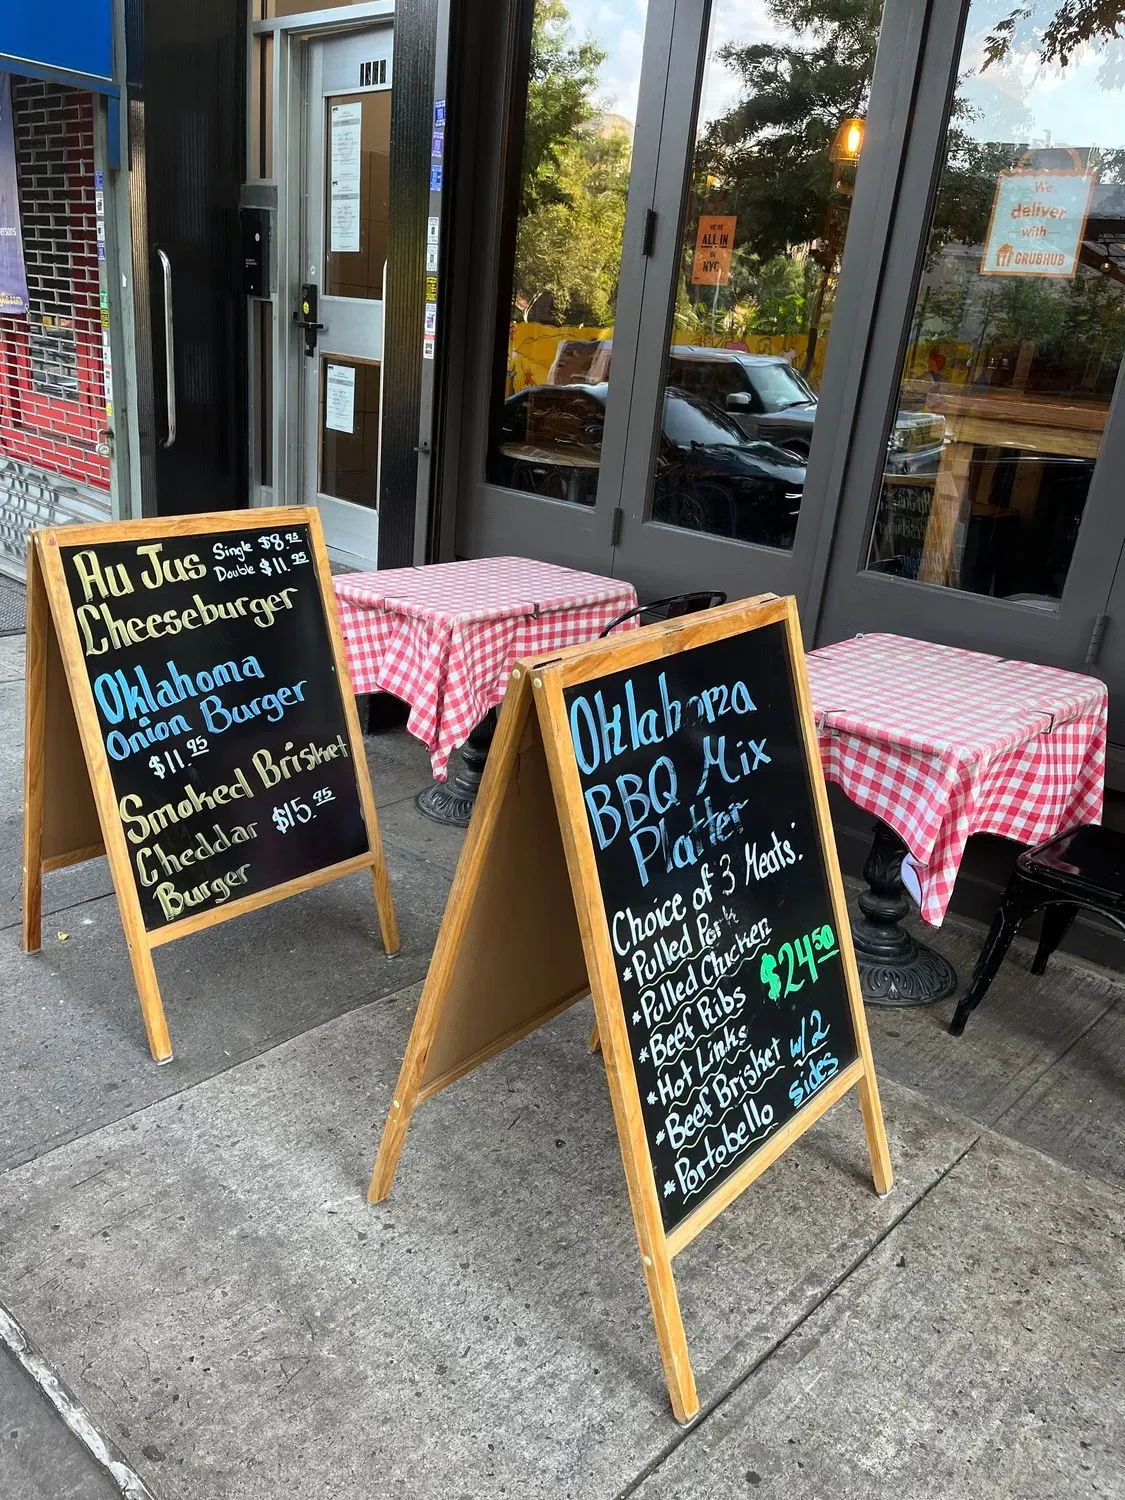 Au Jus
Single $8.95
Double $11.95
Cheeseburger
Oklahoma
Onion Burger
$11.95
Smoked Brisket
Cheddar $15.95
Burger
Oklahoma
BBQ Mix
Platter
Choice of 3 Meats:
*Pulled Pork
*Pulled Chicken
*Beef Ribs
*Hot Links
*Beef Brisket
*Portobello
$24.50
w/2
Sides
WE'RE
ALL IN
NYC
We
deliver
with
GRUBHUB